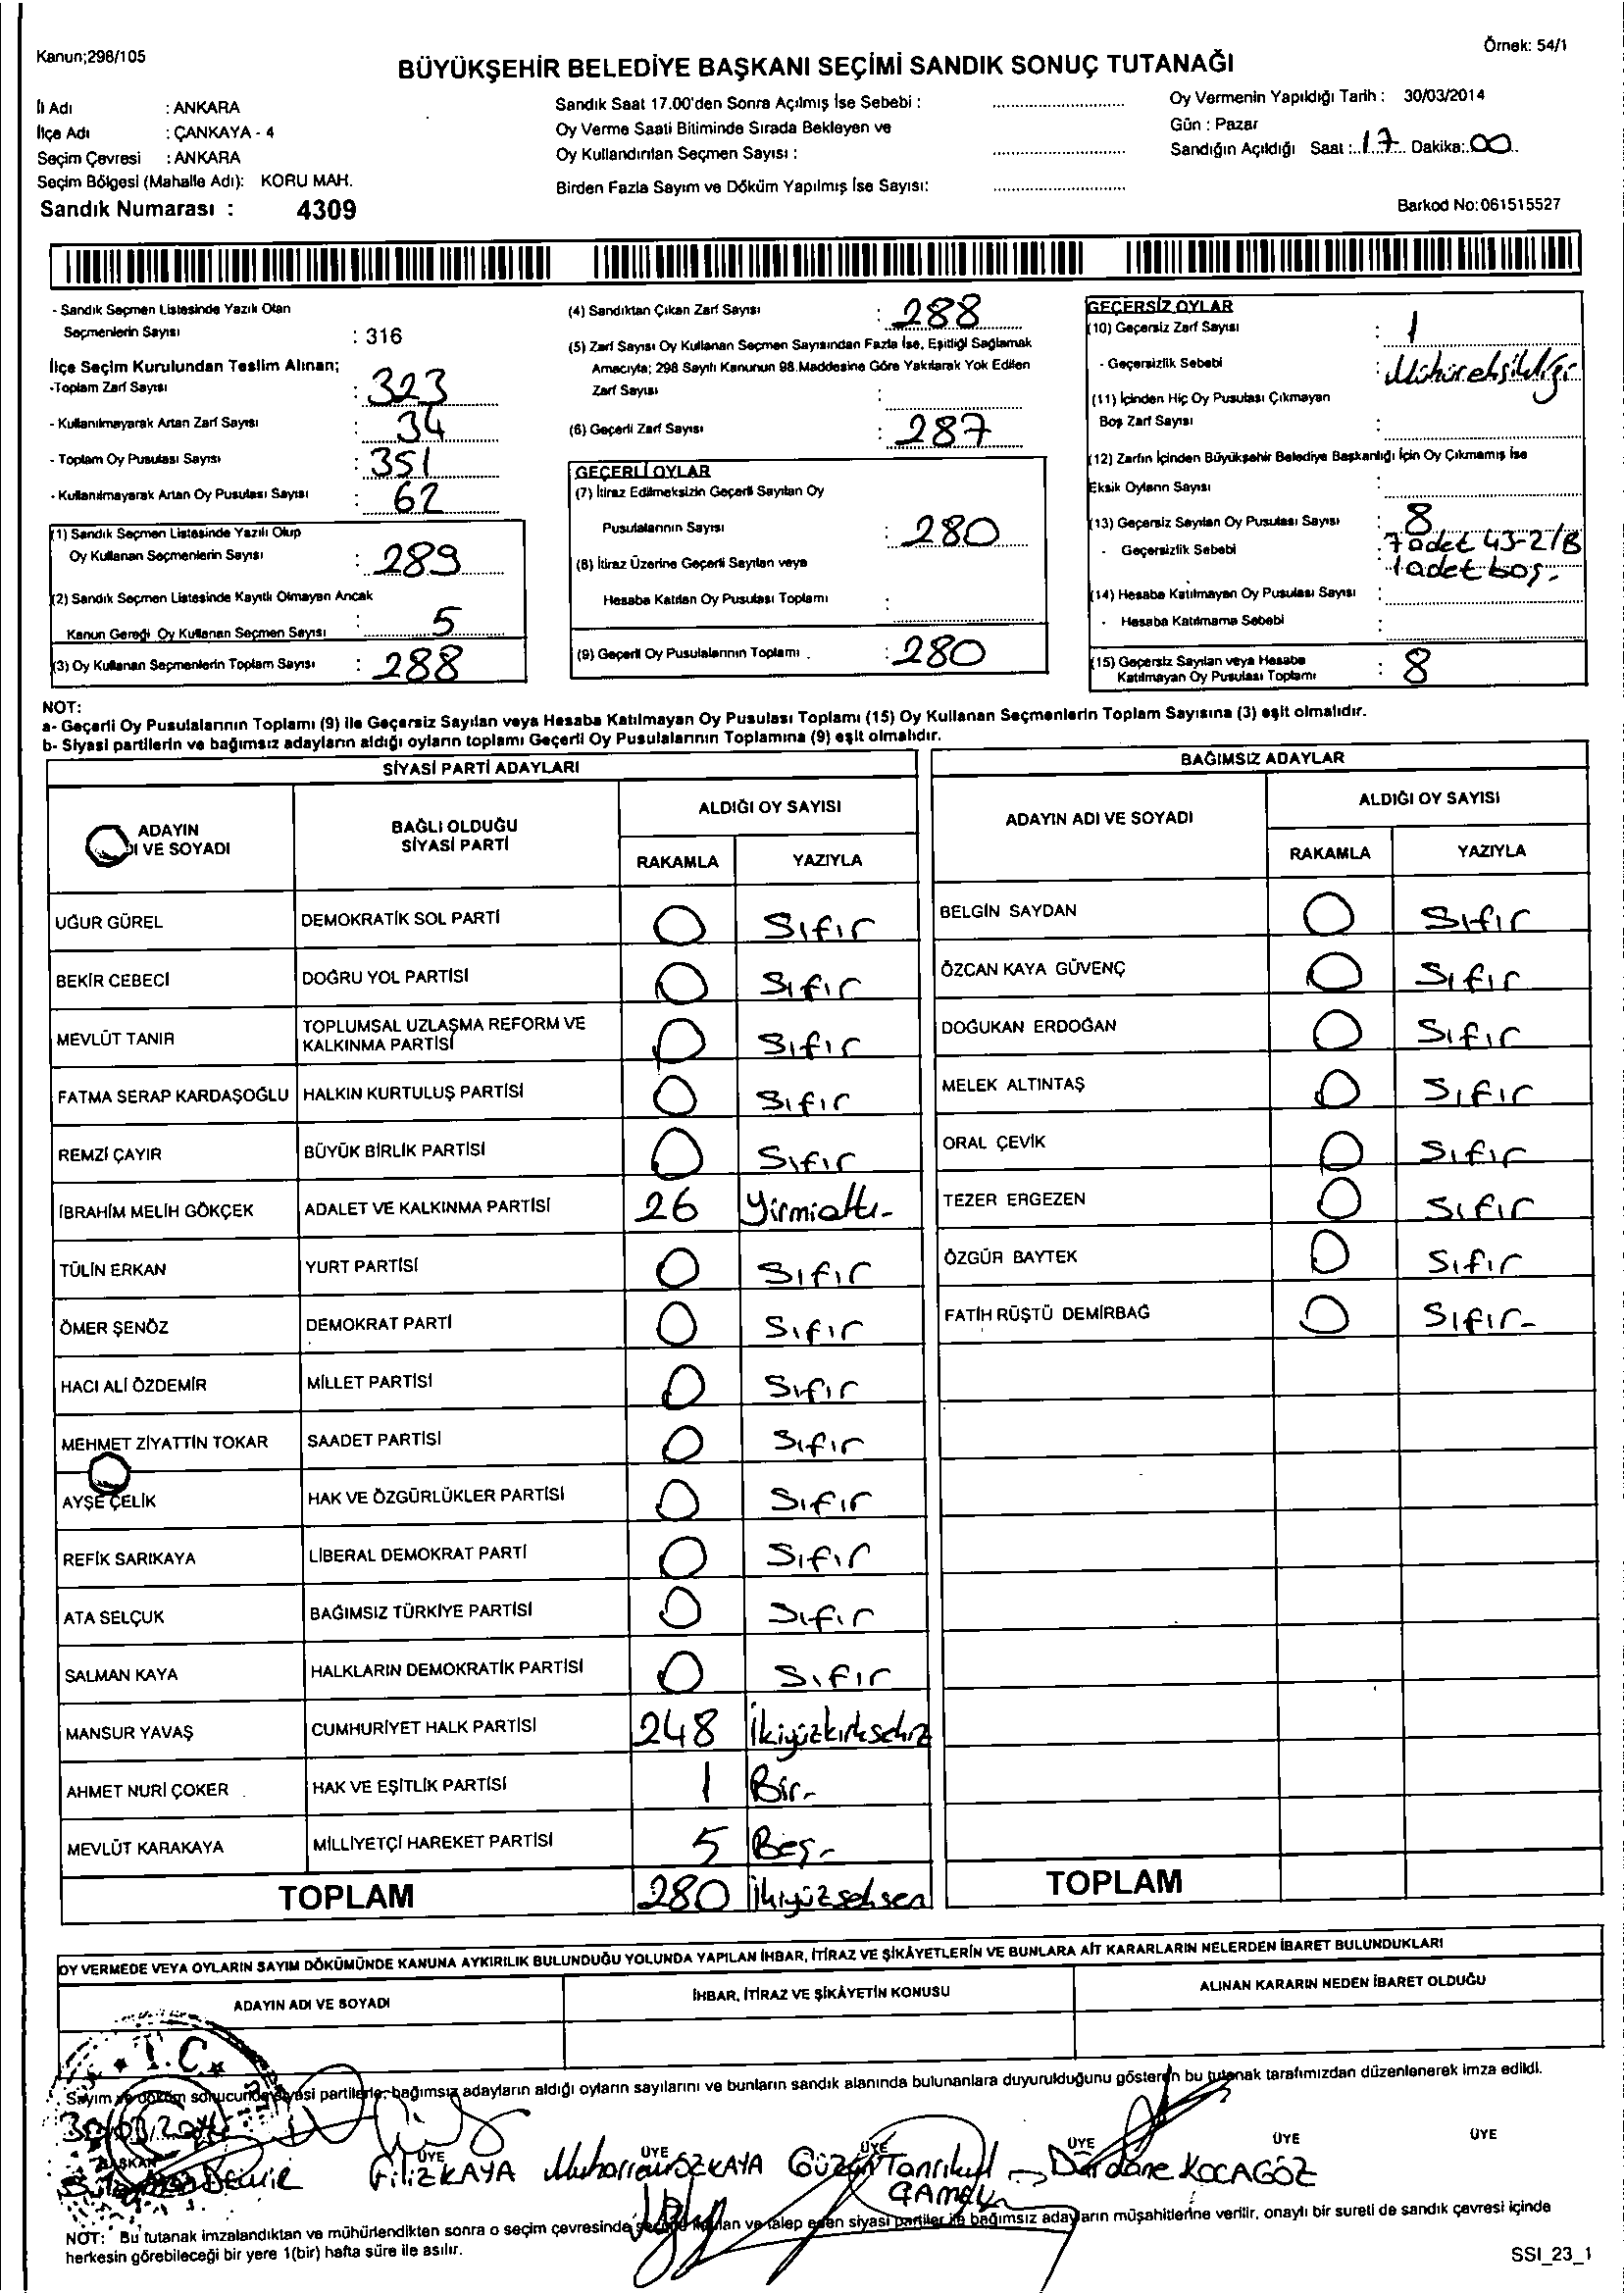 Kanun;298/105
Örnek: 54/1
BÜYÜKŞEHİR BELEDİYE BAŞKANI SEÇİMİ SANDIK SONUÇ TUTANAĞI
İl Adı : ANKARA
İlçe Adı : ÇANKAYA - 4
Seçim Çevresi : ANKARA
Seçim Bölgesi (Mahalle Adı): KORU MAH.
Sandık Numarası : 4309
Sandık Saat 17.00'den Sonra Açılmış İse Sebebi :
Oy Verme Saati Bitiminde Sırada Bekleyen ve
Oy Kullandırılan Seçmen Sayısı :
Birden Fazla Sayım ve Döküm Yapılmış İse Sayısı:
Oy Vermenin Yapıldığı Tarih : 30/03/2014
Gün : Pazar
Sandığın Açıldığı Saat :..17.. Dakika:.00..
Barkod No:061515527
- Sandık Seçmen Listesinde Yazılı Olan
Seçmenlerin Sayısı : 316
İlçe Seçim Kurulundan Teslim Alınan;
-Toplam Zarf Sayısı : 323
- Kullanılmayarak Artan Zarf Sayısı : 34
- Toplam Oy Pusulası Sayısı : 351
- Kullanılmayarak Artan Oy Pusulası Sayısı : 62
(1) Sandık Seçmen Listesinde Yazılı Olup
Oy Kullanan Seçmenlerin Sayısı : 289
(2) Sandık Seçmen Listesinde Kayıtlı Olmayan Ancak
Kanun Gereği Oy Kullanan Seçmen Sayısı : 5
(3) Oy Kullanan Seçmenlerin Toplam Sayısı : 288
(4) Sandıktan Çıkan Zarf Sayısı : 288
(5) Zarf Sayısı Oy Kullanan Seçmen Sayısından Fazla İse, Eşitliği Sağlamak
Amacıyla; 298 Sayılı Kanunun 98.Maddesine Göre Yakılarak Yok Edilen
Zarf Sayısı :
(6) Geçerli Zarf Sayısı : 287
GEÇERLİ OYLAR
(7) İtiraz Edilmeksizin Geçerli Sayılan Oy
Pusulalarının Sayısı : 280
(8) İtiraz Üzerine Geçerli Sayılan veya
Hesaba Katılan Oy Pusulası Toplamı :
(9) Geçerli Oy Pusulalarının Toplamı : 280
GEÇERSİZ OYLAR
(10) Geçersiz Zarf Sayısı : 1
- Geçersizlik Sebebi : Mühür eksikliği
(11) İçinden Hiç Oy Pusulası Çıkmayan
Boş Zarf Sayısı :
(12) Zarfın İçinden Büyükşehir Belediye Başkanlığı İçin Oy Çıkmamış İse
Eksik Oyların Sayısı :
(13) Geçersiz Sayılan Oy Pusulası Sayısı : 8
- Geçersizlik Sebebi : 7 adet 43-2/B
1 adet boş.
(14) Hesaba Katılmayan Oy Pusulası Sayısı :
- Hesaba Katılmama Sebebi :
(15) Geçersiz Sayılan veya Hesaba
Katılmayan Oy Pusulası Toplamı : 8
NOT:
a- Geçerli Oy Pusulalarının Toplamı (9) ile Geçersiz Sayılan veya Hesaba Katılmayan Oy Pusulası Toplamı (15) Oy Kullanan Seçmenlerin Toplam Sayısına (3) eşit olmalıdır.
b- Siyasi partilerin ve bağımsız adayların aldığı oyların toplamı Geçerli Oy Pusulalarının Toplamına (9) eşit olmalıdır.
SİYASİ PARTİ ADAYLARI
ADAYIN
DI VE SOYADI
BAĞLI OLDUĞU
SİYASİ PARTİ
ALDIĞI OY SAYISI
RAKAMLA YAZIYLA
UĞUR GÜREL DEMOKRATİK SOL PARTİ 0 Sıfır
BEKİR CEBECİ DOĞRU YOL PARTİSİ 0 Sıfır
MEVLÜT TANIR TOPLUMSAL UZLAŞMA REFORM VE KALKINMA PARTİSİ 0 Sıfır
FATMA SERAP KARDAŞOĞLU HALKIN KURTULUŞ PARTİSİ 0 Sıfır
REMZİ ÇAYIR BÜYÜK BİRLİK PARTİSİ 0 Sıfır
İBRAHİM MELİH GÖKÇEK ADALET VE KALKINMA PARTİSİ 26 Yirmialtı-
TÜLİN ERKAN YURT PARTİSİ 0 Sıfır
ÖMER ŞENÖZ DEMOKRAT PARTİ 0 Sıfır
HACI ALİ ÖZDEMİR MİLLET PARTİSİ 0 Sıfır
MEHMET ZİYATTİN TOKAR SAADET PARTİSİ 0 Sıfır
AYŞE ÇELİK HAK VE ÖZGÜRLÜKLER PARTİSİ 0 Sıfır
REFİK SARIKAYA LİBERAL DEMOKRAT PARTİ 0 Sıfır
ATA SELÇUK BAĞIMSIZ TÜRKİYE PARTİSİ 0 Sıfır
SALMAN KAYA HALKLARIN DEMOKRATİK PARTİSİ 0 Sıfır
MANSUR YAVAŞ CUMHURİYET HALK PARTİSİ 248 İkiyüzkırksekiz
AHMET NURİ ÇOKER HAK VE EŞİTLİK PARTİSİ 1 Bir-
MEVLÜT KARAKAYA MİLLİYETÇİ HAREKET PARTİSİ 5 Beş-
TOPLAM 280 İkiyüzseksen
BAĞIMSIZ ADAYLAR
ADAYIN ADI VE SOYADI
ALDIĞI OY SAYISI
RAKAMLA YAZIYLA
BELGİN SAYDAN 0 Sıfır
ÖZCAN KAYA GÜVENÇ 0 Sıfır
DOĞUKAN ERDOĞAN 0 Sıfır
MELEK ALTINTAŞ 0 Sıfır
ORAL ÇEVİK 0 Sıfır
TEZER ERGEZEN 0 Sıfır
ÖZGÜR BAYTEK 0 Sıfır
FATİH RÜŞTÜ DEMİRBAĞ 0 Sıfır-
TOPLAM
OY VERMEDE VEYA OYLARIN SAYIM DÖKÜMÜNDE KANUNA AYKIRILIK BULUNDUĞU YOLUNDA YAPILAN İHBAR, İTİRAZ VE ŞİKÂYETLERİN VE BUNLARA AİT KARARLARIN NELERDEN İBARET BULUNDUKLARI
ADAYIN ADI VE SOYADI
İHBAR, İTİRAZ VE ŞİKÂYETİN KONUSU
ALINAN KARARIN NEDEN İBARET OLDUĞU
T.C.
Sayım ve döküm sonucunda siyasi partilerle, bağımsız adayların aldığı oyların sayılarını ve bunların sandık alanında bulunanlara duyurulduğunu gösteren bu tutanak tarafımızdan düzenlenerek imza edildi.
30/03/2014
BAŞKAN ÜYE ÜYE ÜYE ÜYE ÜYE ÜYE
FİLİZ KAYA Muharrem ÖZKAYA Tanrıkul Dürdane KOCAGÖZ
NOT: Bu tutanak imzalandıktan ve mühürlendikten sonra o seçim çevresinde seçime katılan ve talep eden siyasi partiler ile bağımsız adayların müşahitlerine verilir, onaylı bir sureti de sandık çevresi içinde
herkesin görebileceği bir yere 1(bir) hafta süre ile asılır.
SSI_23_1